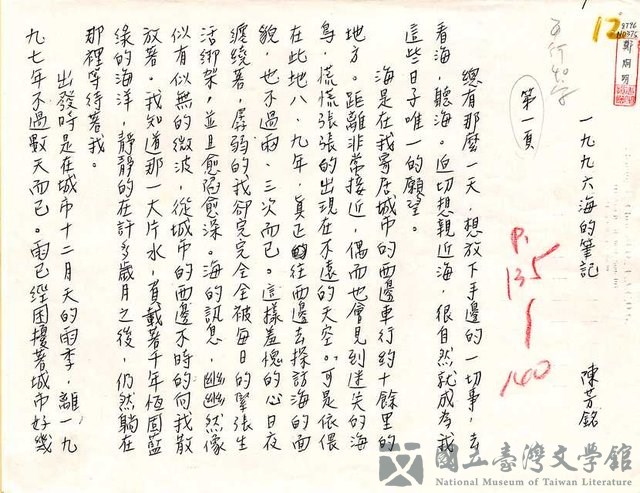 12
9776
N0376
鄭烱明
5行45字
一九九六海的筆記
陳芳銘
第一頁
P.
135
140
總有那麼一天，想放下手邊的一切事，去
看海，聽海。迫切想親近海，很自然就成為我
這些日子唯一的願望。
海是在我寄居城市的西邊車行約十餘里的
地方。距離非常接近，偶而也會見到迷失的海
鳥，慌慌張張的出現在不遠的天空。可是依偎
在此地八、九年，真正往西邊去探訪海的面
貌，也不過兩、三次而已。這樣羞愧的心日夜
纏繞著，孱弱的我卻完完全全被每日的緊張生
活綁架，並且愈陷愈深。海的訊息，幽幽然像
似有似無的微波，從城市的西邊不時的向我散
放著。我知道那一大片水，負載著千年恆固藍
綠的海洋，靜靜的在計多歲月之後，仍然躺在
那裡等待著我。
出發時是在城市十二月天的雨季，離一九
九七年不過數天而已。雨已經困擾著城市好幾
國立臺灣文學館
National Museum of Taiwan Literature